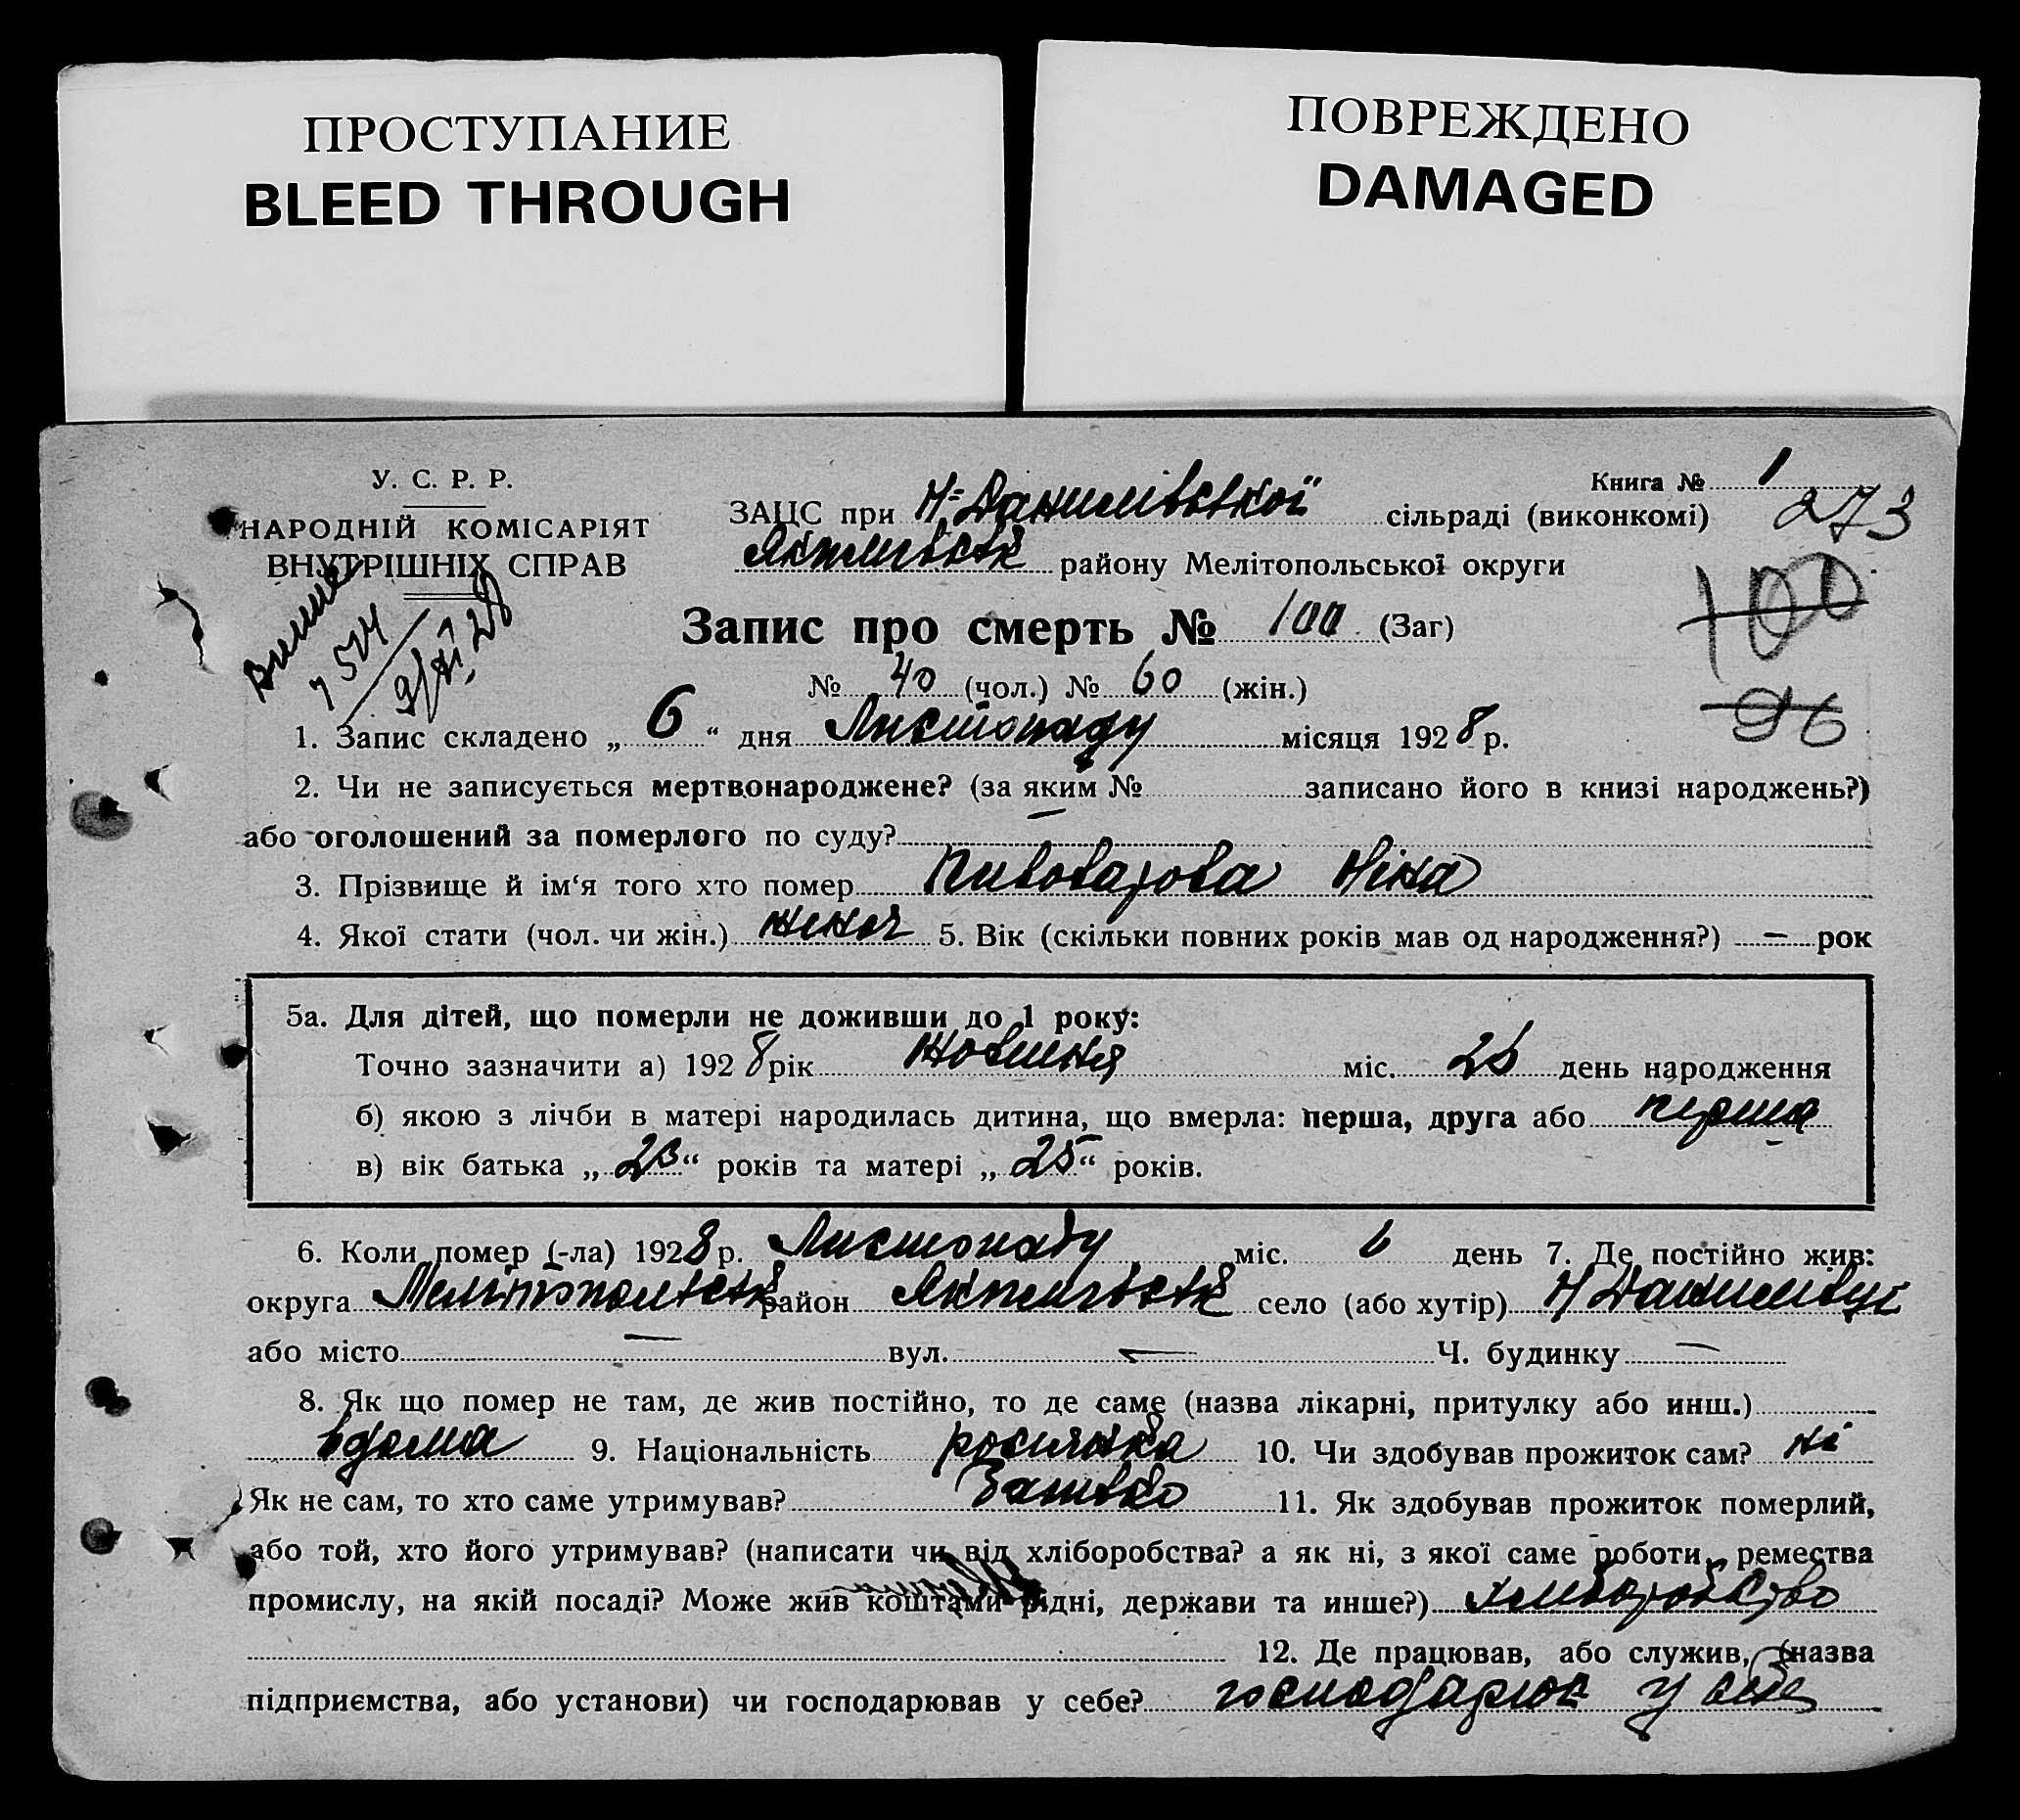 ПРОСТУПАНИЕ
BLEED THROUGH
ПОВРЕЖДЕНО
DAMAGED
У. С. Р. Р.
НАРОДНІЙ КОМІСАРІЯТ
ВНУТРІШНІХ СПРАВ
Книга № 1
273
ЗАЦС при Н-Данилівської сільраді (виконкомі)
району Мелітопольської округи
100
96
Запис про смерть № 100 (Заг)
№ 40 (чол.) № 60 (жін.)
1. Запис складено „ 6 “ дня Листопаду місяця 1928 р.
2. Чи не записується мертвонароджене? (за яким № — записано його в книзі народжень?)
або оголошений за померлого по суду?
3. Прізвище й ім‘я того хто помер Пивоварова Ніна
4. Якої стати (чол. чи жін.) 5. Вік (скільки повних років мав од народження?) — рок
5а. Для дітей, що померли не доживши до 1 року:
Точно зазначити а) 1928 рік жовтня міс. день народження
б) якою з лічби в матері народилась дитина, що вмерла: перша, друга або перша
в) вік батька „ 23 “ років та матері „ 25 “ років.
6. Коли помер (-ла) 1928 р. Листопаду міс. 6 день 7. Де постійно жив:
округа район село (або хутір) Н Данилівці
або місто — вул. — Ч. будинку —
8. Як що помер не там, де жив постійно, то де саме (назва лікарні, притулку або инш.)
вдома 9. Національність росиянка 10. Чи здобував прожиток сам? ні
Як не сам, то хто саме утримував? Батько 11. Як здобував прожиток померлий,
або той, хто його утримував? (написати чи від хліборобства? а як ні, з якої саме роботи, ремества
промислу, на якій посаді? Може жив коштами рідні, держави та инше?) хліборобство
12. Де працював, або служив, (назва
підприємства, або установи) чи господарював у себе? господарює у себе